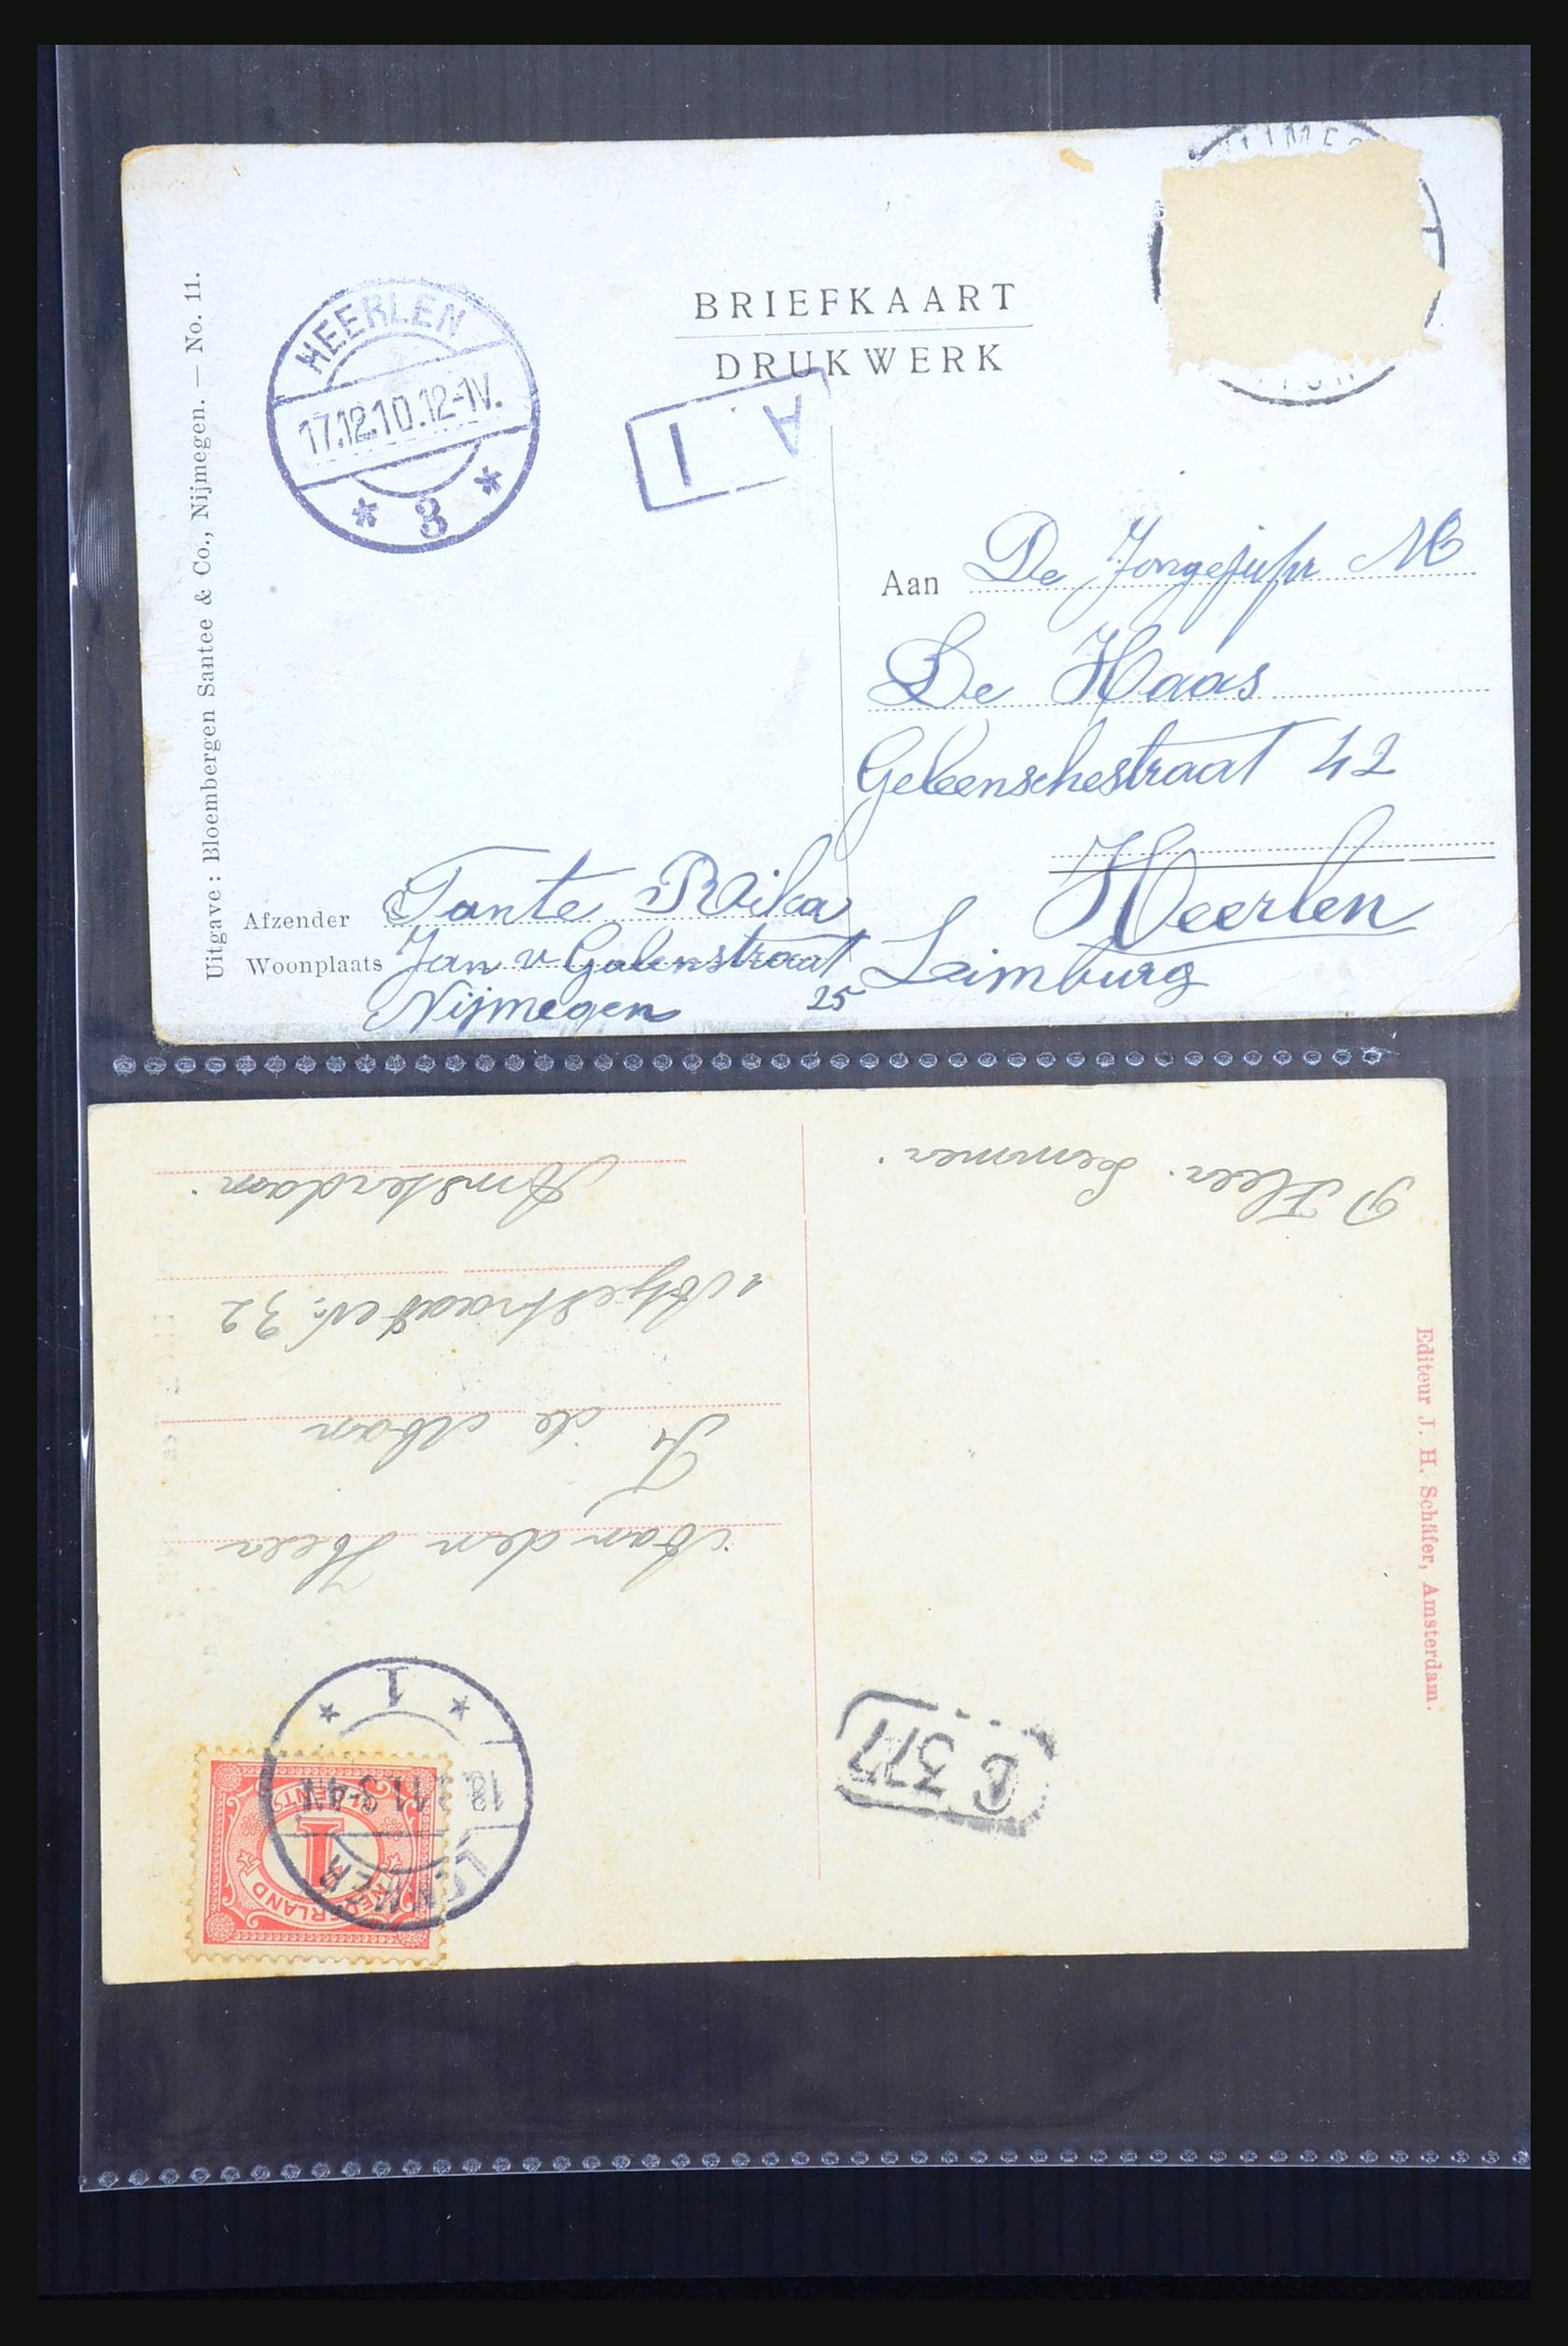 Uitgave : Bloembergen Santee & Co., Nijmegen. — No. 11.
HEERLEN
17.12.10.12-1V.
* 3 *
BRIEFKAART
DRUKWERK
A I
Aan De Jongejufr M
De Haas
Geleenschestraat 42
Heerlen
Limburg
Afzender Tante Rika
Woonplaats Jan v Galenstraat
Nijmegen 25
P Heer. Lemmer.
Editeur J. H. Schäfer, Amsterdam.
C 377
NEDERLAND
1
CENT
LEMMER
11.3-4N
* 1 *
Aan den Heer
de Haan
32
Amsterdam.